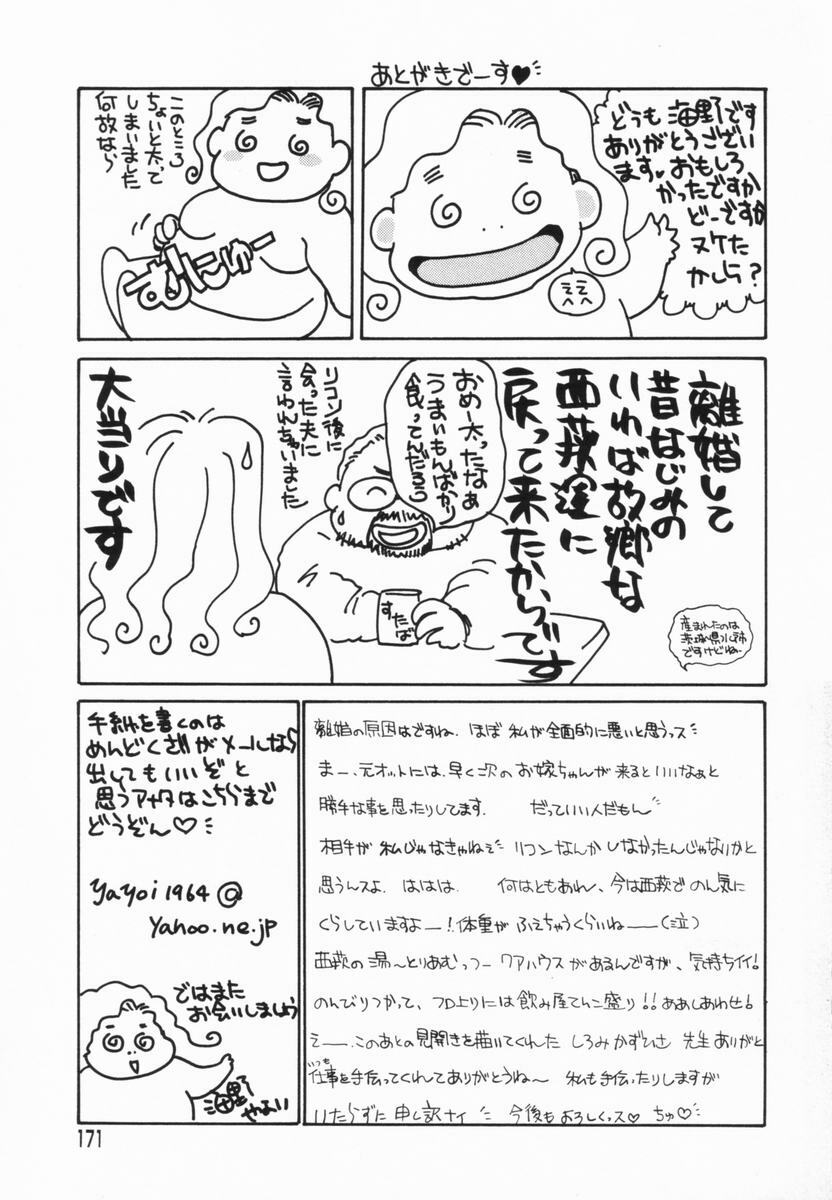 あとがきでーす♥
どうも海野です
ありがとうござい
ます♥おもしろ
かったですか
どーですか
ヌケた
かしら？
えへへ
このところ
ちょいと太って
しまいました
何故なら
むにゅー
離婚して
昔なじみの
いわば故郷な
西荻窪に
戻って来たからです
産まれたのは
茨城県水戸市
ですけどね。
おめー太ったなぁ
うまいもんばかり
食ってんだろう
すたば
リコン後に
会った夫に
言われちゃいました
大当りです
離婚の原因はですね、ほぼ私が全面的に悪いと思うっス
まー、元オットには、早く次のお嫁ちゃんが来るといいなぁと
勝手な事を思ったりしてます. だっていい人だもん
相手が私じゃなきゃねぇ リコンなんかしなかったんじゃないかと
思うんスよ. ははは. 何はともあれ、今は西荻でのん気に
くらしていますよー！体重がふえちゃうくらいね――(泣)
西荻の湯〜とりあむっつークアハウスがあるんですが、気持ちイイ!
のんびりつかって、フロ上りには飲み屋てんこ盛り!!ああしあわせ!
えー、このあとの見開きを描いてくれた しろみかずひさ 先生ありがと
いつも
仕事を手伝ってくれてありがとうね〜 私も手伝ったりしますが
いたらずに申し訳ナイ 今後もよろしくっス♡ ちゅ♡
手紙を書くのは
めんどくさいがメールなら
出してもいいぞと
思うアナタはこちらまで
どうぞん♡
yayoi1964@
yahoo.ne.jp
ではまた
お会いしましょう
海野
やよい
171